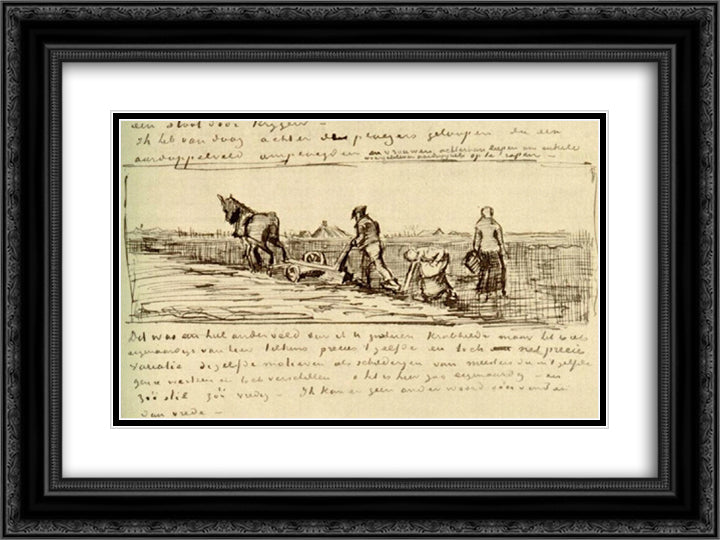 een stoot voor krygen –
Ik heb van daag achter de ploegers geloopen die een
aardappelveld omploegden en vrouwen achteraan liepen om enkele
aardappels op te rapen –
Dit was een heel ander veld dan ik je gisteren krabbelde maar het is iets
eigenaardigs van hier telkens precies 't zelfde en toch net precies
variatie dezelfde motieven als schilderijen van meesters die in 't zelfde
genre werken en toch verschillen o het is hier zoo eigenaardig – en
zoo stil zoo vredig – Ik kan er geen ander woord voor vinden
dan vrede –